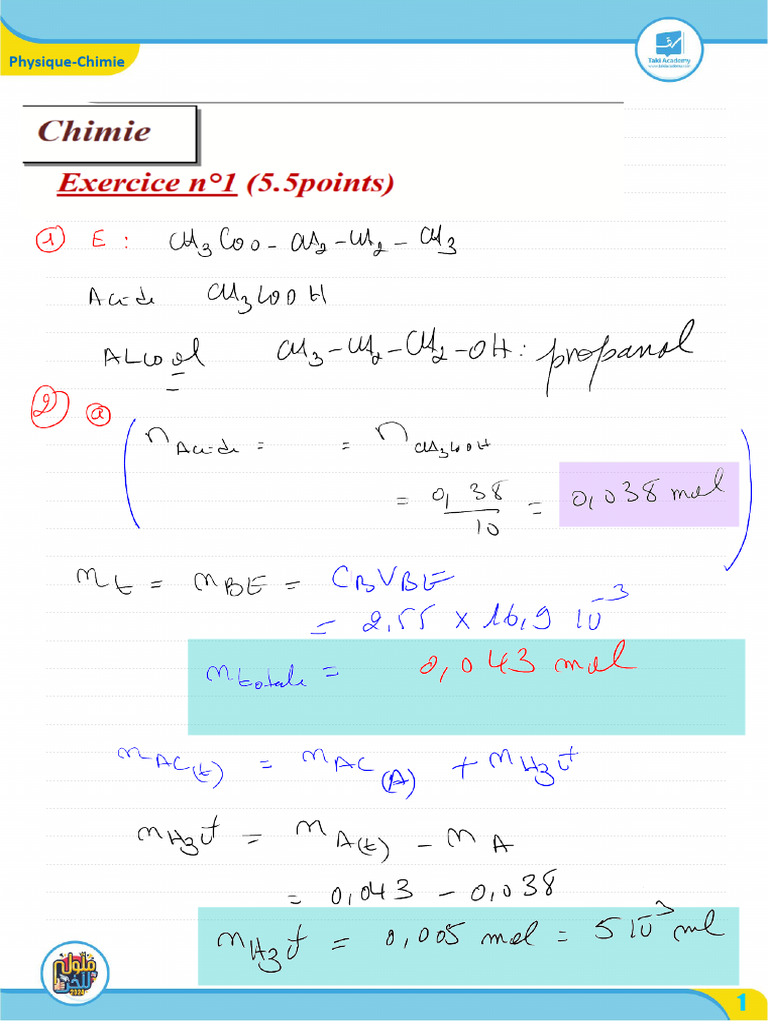 Physique-Chimie
Taki Academy
www.takiacademy.com
Chimie
Exercice n°1 (5.5points)
① E : CH3COO - CH2 - CH2 - CH3
Acide CH3COOH
ALcool CH3 - CH2 - CH2 - OH : propanol
② ⓐ
n Acide = = n CH3COOH
= 0,38 / 10 = 0,038 mol
nt = nBE = CB VBE
= 2,55 x 16,9 10^-3
n totale = 0,043 mol
nAC(t) = nAC(A) + nH3O+
nH3O+ = nA(t) - nA
= 0,043 - 0,038
nH3O+ = 0,005 mol = 5 10^-3 ml
2024
1